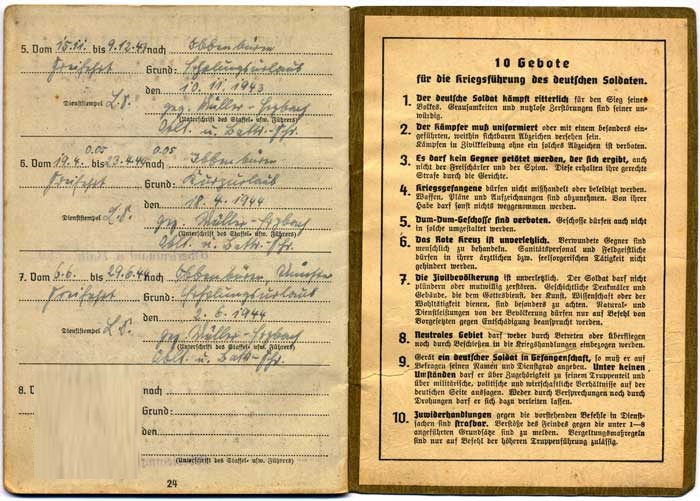 5. Vom 15.11. bis 9.12.43 nach Ibbenbüren
Freifahrt Grund: Erholungsurlaub
den 10.11.1943
Dienststempel L.S. gez. Müller-
(Unterschrift des Staffel- usw. Führers)
Abt. u. Battr.-Fhr.
0.05 0.05
6. Vom 19.4. bis 23.4.44 nach Ibbenbüren
Freifahrt Grund: Kurzurlaub
den 18.4.1944
Dienststempel L.S. gez. Müller-
(Unterschrift des Staffel- usw. Führers)
Abt. u. Battr.-Fhr.
7. Vom 6.6. bis 29.6.44 nach Ibbenbüren Münster
Freifahrt Grund: Erholungsurlaub
den 2.6.1944
Dienststempel L.S. gez. Müller-
(Unterschrift des Staffel- usw. Führers)
Abt. u. Battr.-Fhr.
8. nach
Grund:
den
(Unterschrift des Staffel- usw. Führers)
24
10 Gebote
für die Kriegsführung des deutschen Soldaten.
1. Der deutsche Soldat kämpft ritterlich für den Sieg seines
Volkes. Grausamkeiten und nutzlose Zerstörungen sind seiner un-
würdig.
2. Der Kämpfer muß uniformiert oder mit einem besonders ein-
geführten, weithin sichtbaren Abzeichen versehen sein.
Kämpfen in Zivilkleidung ohne ein solches Abzeichen ist verboten.
3. Es darf kein Gegner getötet werden, der sich ergibt, auch
nicht der Freischärler und der Spion. Diese erhalten ihre gerechte
Strafe durch die Gerichte.
4. Kriegsgefangene dürfen nicht mißhandelt oder beleidigt werden.
Waffen, Pläne und Aufzeichnungen sind abzunehmen. Von ihrer
Habe darf sonst nichts weggenommen werden.
5. Dum-Dum-Geschosse sind verboten. Geschosse dürfen auch nicht
in solche umgestaltet werden.
6. Das Rote Kreuz ist unverletzlich. Verwundete Gegner sind
menschlich zu behandeln. Sanitätspersonal und Feldgeistliche
dürfen in ihrer ärztlichen bzw. seelsorgerischen Tätigkeit nicht
gehindert werden.
7. Die Zivilbevölkerung ist unverletzlich. Der Soldat darf nicht
plündern oder mutwillig zerstören. Geschichtliche Denkmäler und
Gebäude, die dem Gottesdienst, der Kunst, Wissenschaft oder der
Wohltätigkeit dienen, sind besonders zu achten. Natural- und
Dienstleistungen von der Bevölkerung dürfen nur auf Befehl von
Vorgesetzten gegen Entschädigung beansprucht werden.
8. Neutrales Gebiet darf weder durch Betreten oder Überfliegen
noch durch Beschießen in die Kriegshandlungen einbezogen werden.
9. Gerät ein deutscher Soldat in Gefangenschaft, so muß er auf
Befragen seinen Namen und Dienstgrad angeben. Unter keinen
Umständen darf er über Zugehörigkeit zu seinem Truppenteil und
über militärische, politische und wirtschaftliche Verhältnisse auf der
deutschen Seite aussagen. Weder durch Versprechungen noch durch
Drohungen darf er sich dazu verleiten lassen.
10. Zuwiderhandlungen gegen die vorstehenden Befehle in Dienst-
sachen sind strafbar. Verstöße des Feindes gegen die unter 1—8
angeführten Grundsätze sind zu melden. Vergeltungsmaßregeln
sind nur auf Befehl der höheren Truppenführung zulässig.